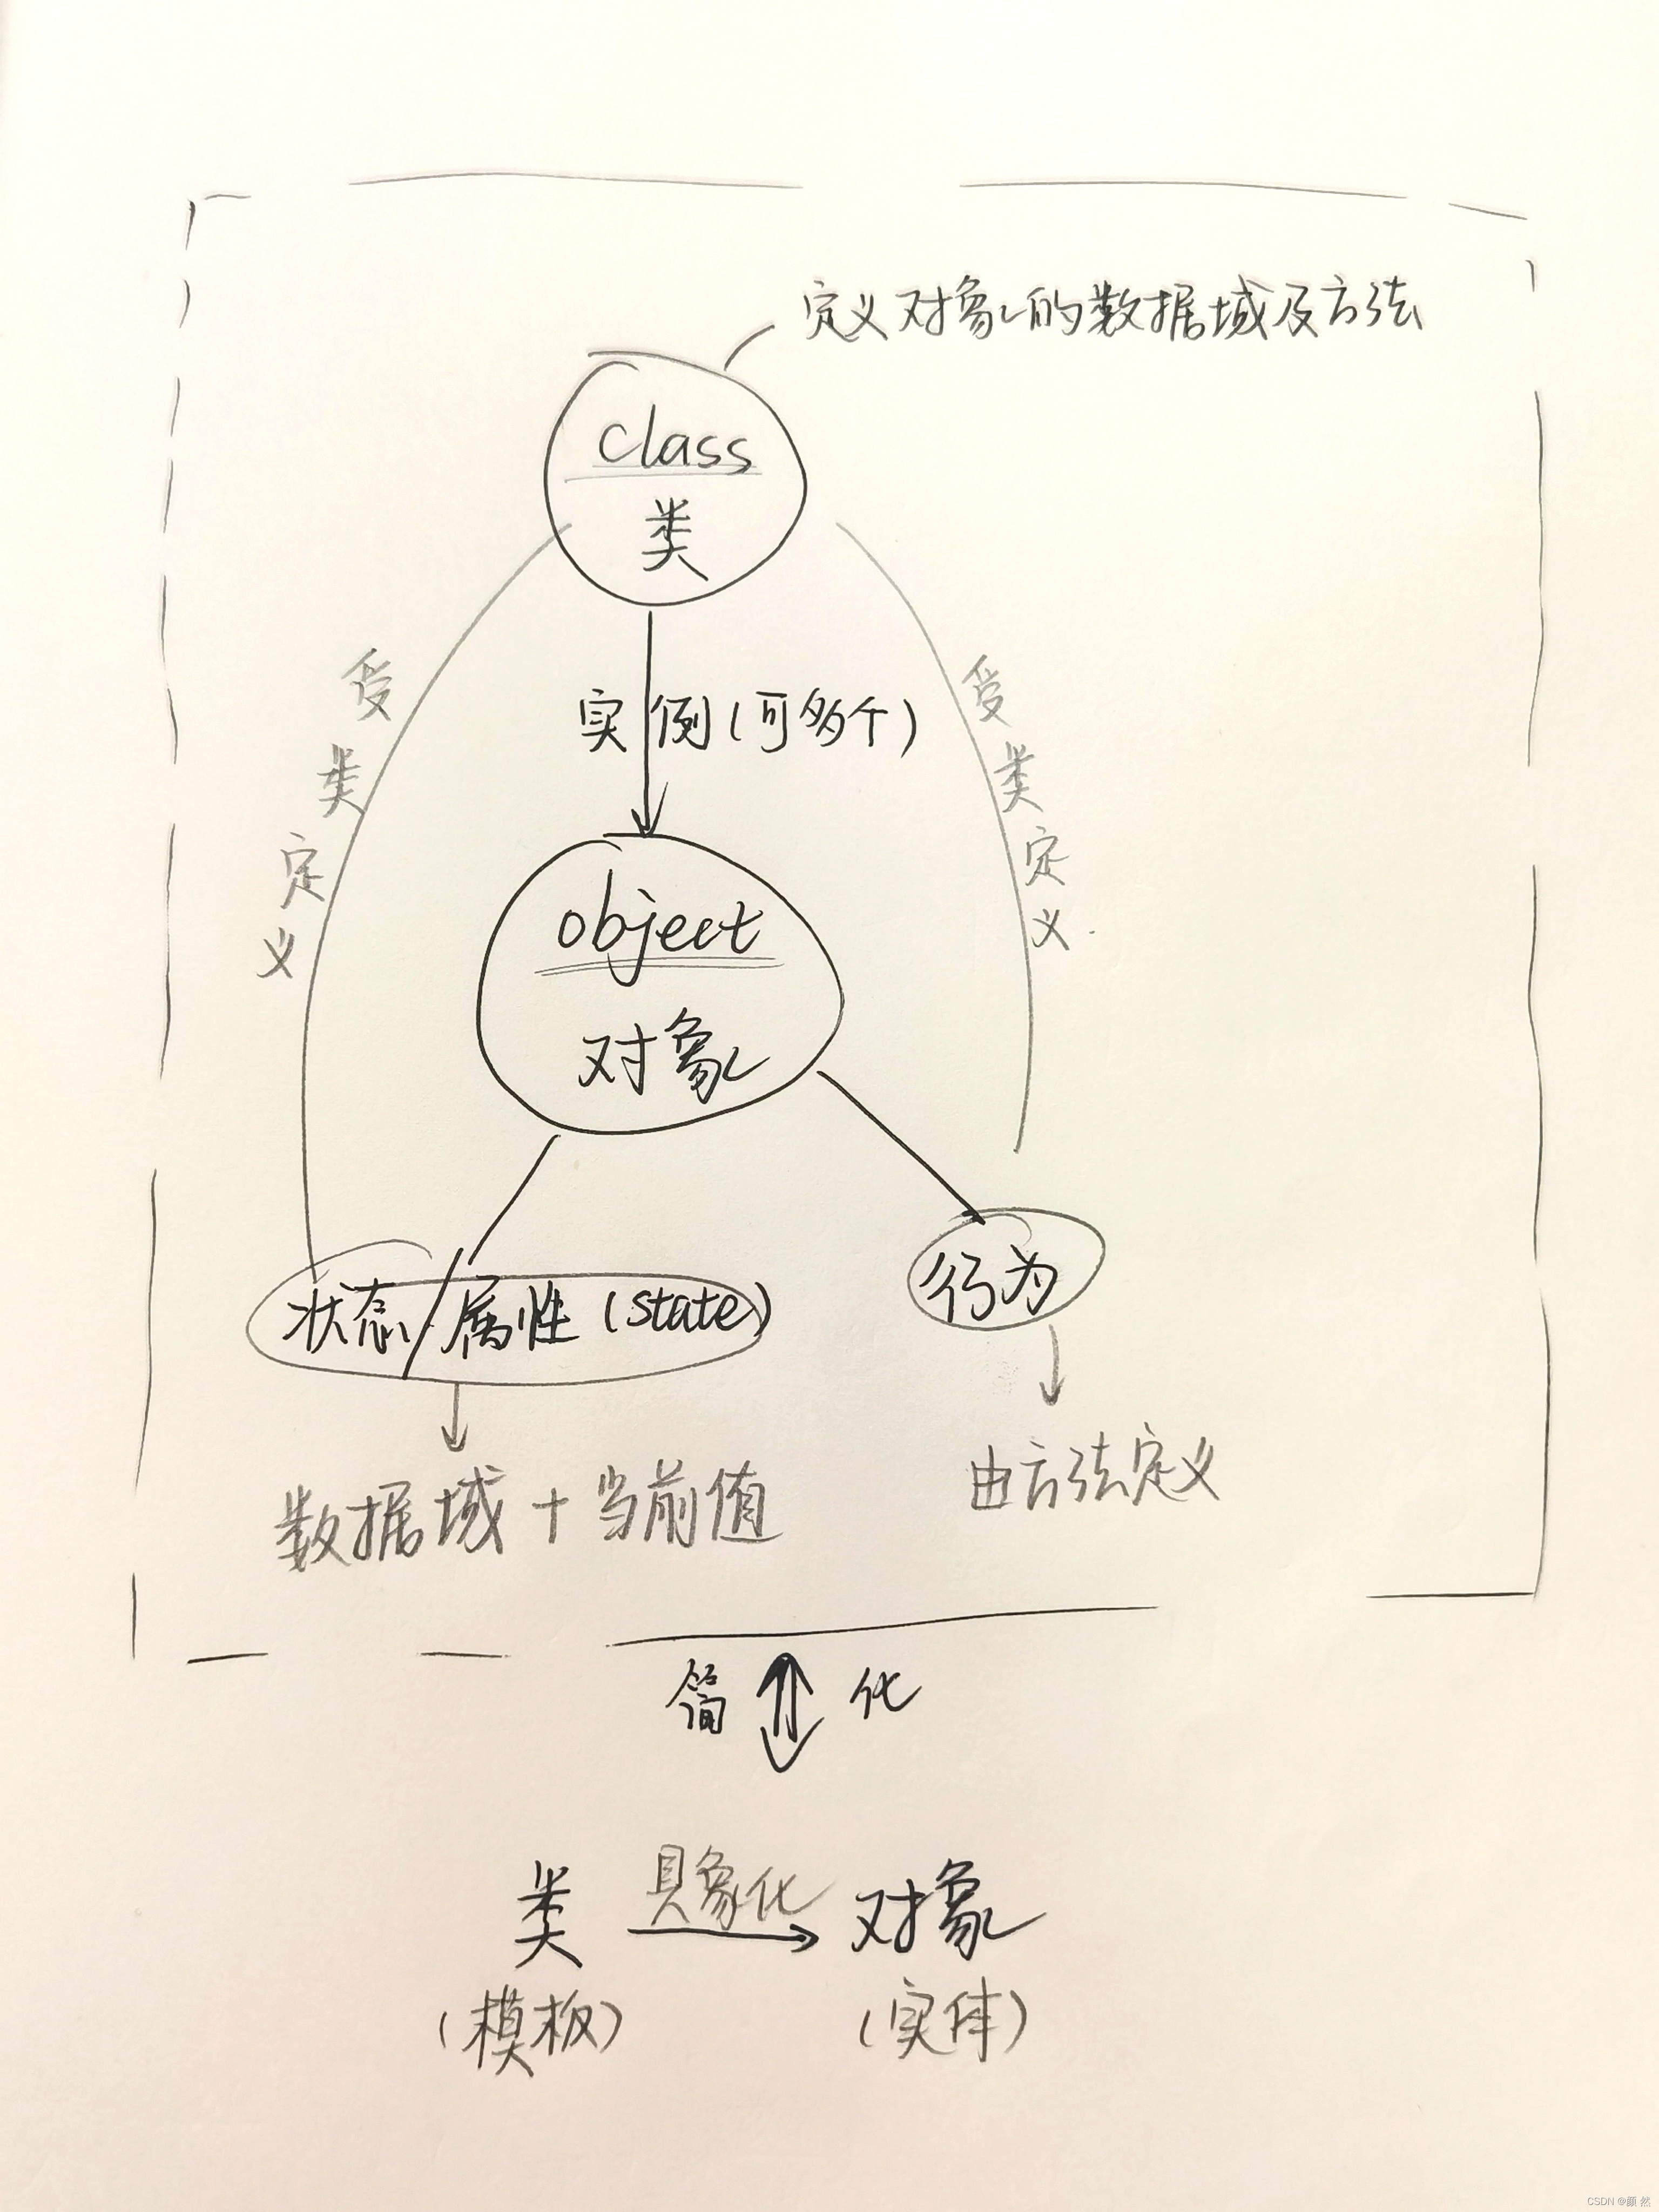 定义对象的数据域及方法
class
类
实例(可多个)
受类定义
受类定义
object
对象
状态/属性(state)
行为
数据域+当前值
由方法定义
简化
类 具象化 对象
(模板) (实体)
CSDN @颜 然